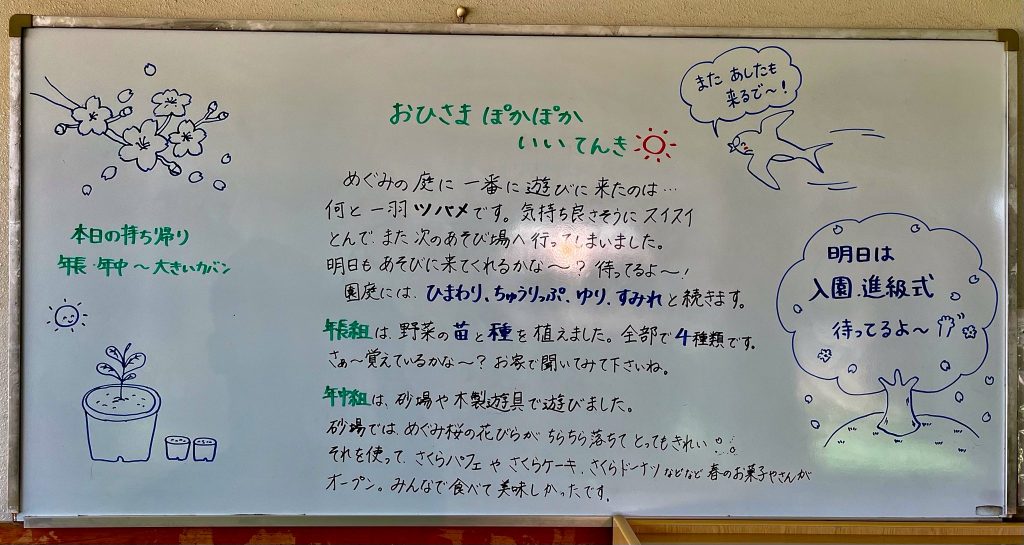 おひさま ぽかぽか
いい てんき
めぐみの 庭に 一番に 遊びに 来たのは…
何と 一羽 ツバメです。気持ち良さそうに スイスイ
とんで、また 次のあそび場へ 行ってしまいました。
明日も あそびに来てくれるかな〜? 待ってるよ〜!
園庭には、ひまわり、ちゅうりっぷ、ゆり、すみれと続きます。
年長組は、野菜の苗と種を植えました。全部で4種類です。
さぁ〜覚えているかな〜? お家で聞いてみて下さいね。
年中組は、砂場や木製遊具で遊びました。
砂場では、めぐみ桜の花びらが ちらちら落ちて とってもきれい
それを使って、さくらパフェ や さくらケーキ、さくらドーナツ などなど 春のお菓子やさんが
オープン。みんなで食べて 美味しかったです。
本日の持ち帰り
年長・年中〜大きいカバン
また あしたも
来るで〜!
明日は
入園、進級式
待ってるよ〜